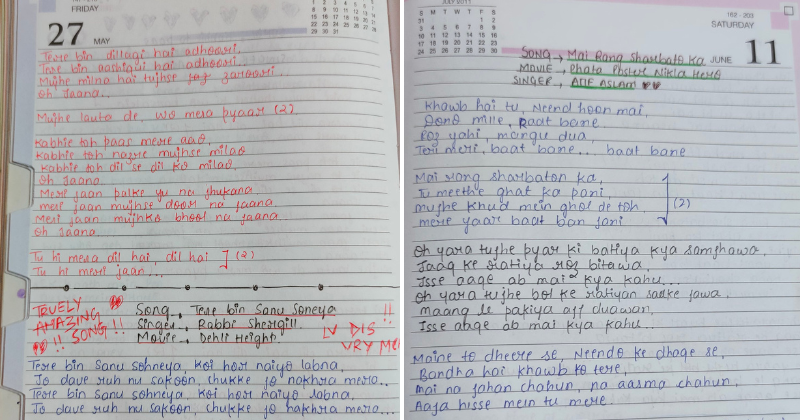 FRIDAY
27 MAY
Tere bin dillagi hai adhoori,
Tere bin aashiqui hai adhoori...
Mujhe milna hai tujhse roz zaroori,
Oh Jaana...
Mujhe lauta de, wo mera pyaar (2).
Kabhie toh paas mere aao,
Kabhie toh nazre mujhse milao
Kabhie toh dil se dil ko milao,
Oh Jaana...
Meri jaan palke yu na jhukana,
meri jaan mujhse door na jaana,
Meri jaan mujhko bhool na jaana
Oh Jaana...
Tu hi mera dil hai, dil hai
Tu hi meri jaan...
(2)
LOVELY
AMAZING
!! SONG !!
Song → Tere bin Sanu Soneya
Singer → Rabbi Shergill
Movie → Dehli Height
!!
LV DIS
VRY
Tere bin Sanu Sohneya, Koi hor naiyo labna,
Jo dave ruh nu sakoon, chukke jo nakhra mera...
Tere bin sanu sohneya, Koi hor naiyo labna,
Jo dave ruh nu sakoon, chukke jo nakhra mera...
162 - 203
SATURDAY
JUNE 11
SONG → Mai Rang Sharbato Ka
MOVIE → Phata Poster Nikla Hero
SINGER → ATIF ASLAM
Khawb hai tu, Neend hoon mai,
Dono mille, Raat bane
Roz yahi, mangu dua,
Teri meri, baat bane... baat bane
Mai rang sharbaton ka,
Tu meethe ghat ka pani,
mujhe khud mein ghol de toh,
mere yaar baat ban jani
(2)
Oh yara tujhe pyar ki batiya kya samjhawa,
Jaag ke ratiya roz bitawa,
Isse aage ab mai kya kahu...
Oh yara tujhe bol ke ratiyan sadke jawa,
maang le pakiya aff duawan,
Isse aage ab mai kya kahu...
Maine to dheere se, Neendo ke dhage se,
Bandha hai khawb ko tere,
mai na jahan chahun, na aasma chahun,
Aaja hisse mein tu mere